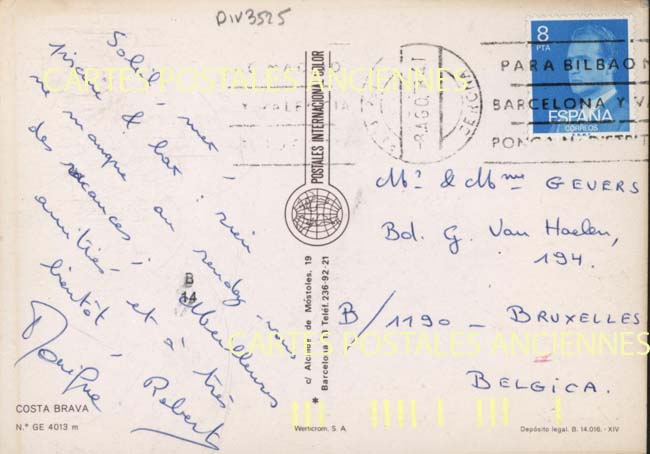 DIV3525
Soleil, mer,
piscine & bar : rien
ne manque au rendez-vous
des vacances ! Meilleures
amitiés et à très
bientôt,
Robert
Monique
B
14
COSTA BRAVA
N.° GE 4013 m
POSTALES INTERNACIONAL COLOR
c/ Alcalde de Móstoles, 19
Barcelona Teléf. 236-92-21
*
Werticrom, S. A.
Y VALENCIA
8 AGO
GERONA
PARA BILBAO
BARCELONA Y VA
PONGA
8
PTA
ESPAÑA
CORREOS
Mr & Mme GEVERS
Bd. G. Van Haelen,
194.
B/1190 - BRUXELLES
BELGICA.
Depósito legal. B. 14.016.-XIV
CARTES POSTALES ANCIENNES
CARTES POSTALES ANCIENNES